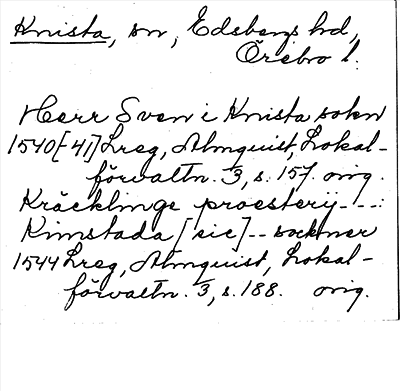 Knista, sn, Edsbergs hd,
Örebro l.
Herr Sven i Knista sokn
1540[-41] Lreg, Almquist, Lokal-
förvaltn. 3, s. 157. orig.
Kräcklinge proesterij - - - :
Kimstada [sic] - - sockner
1544 Lreg, Almquist, Lokal-
förvaltn. 3, s. 188. orig.